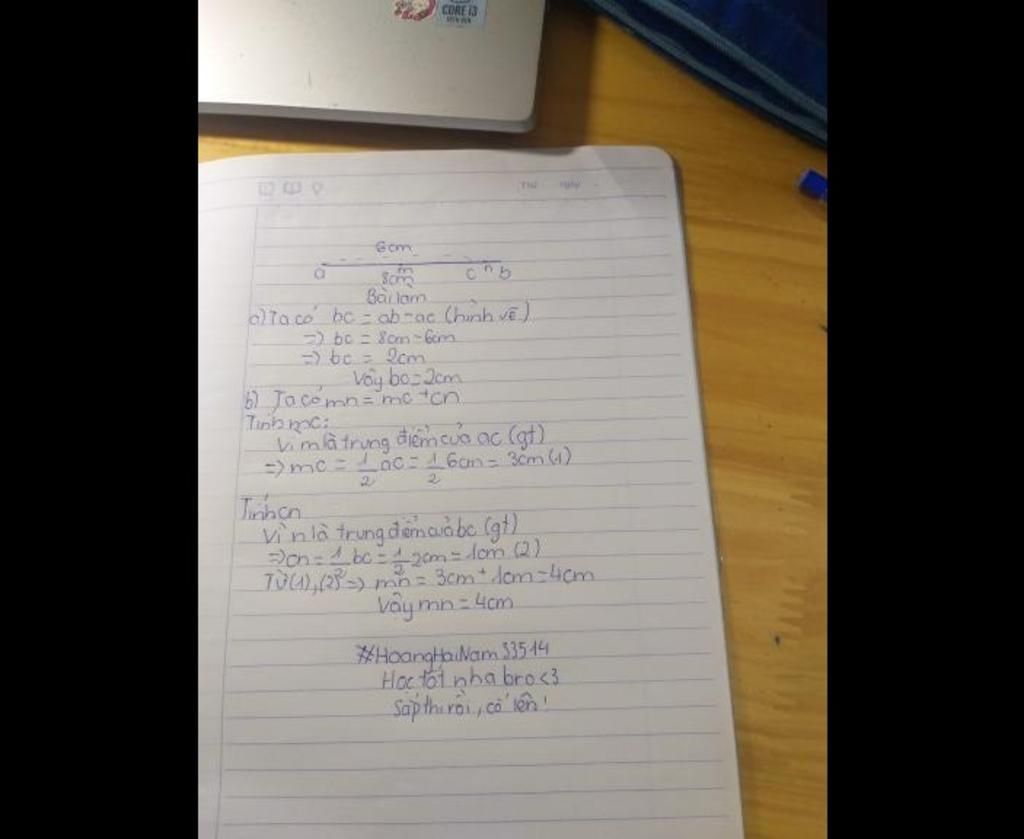 CORE i3
Thứ ngày
6cm
a m c n b
8cm
Bài làm
a) Ta có bc = ab - ac (hình vẽ)
=> bc = 8cm - 6cm
=> bc = 2cm
Vậy bc = 2cm
b) Ta có mn = mc + cn
Tính mc:
Vì m là trung điểm của ac (gt)
=> mc = 1/2 ac = 1/2 6cm = 3cm (1)
Tính cn
Vì n là trung điểm của bc (gt)
=> cn = 1/2 bc = 1/2 2cm = 1cm (2)
Từ (1), (2) => mn = 3cm + 1cm = 4cm
Vậy mn = 4cm
#HoangHaiNam33514
Học tốt nha bro <3
Sắp thi rồi, cố lên!